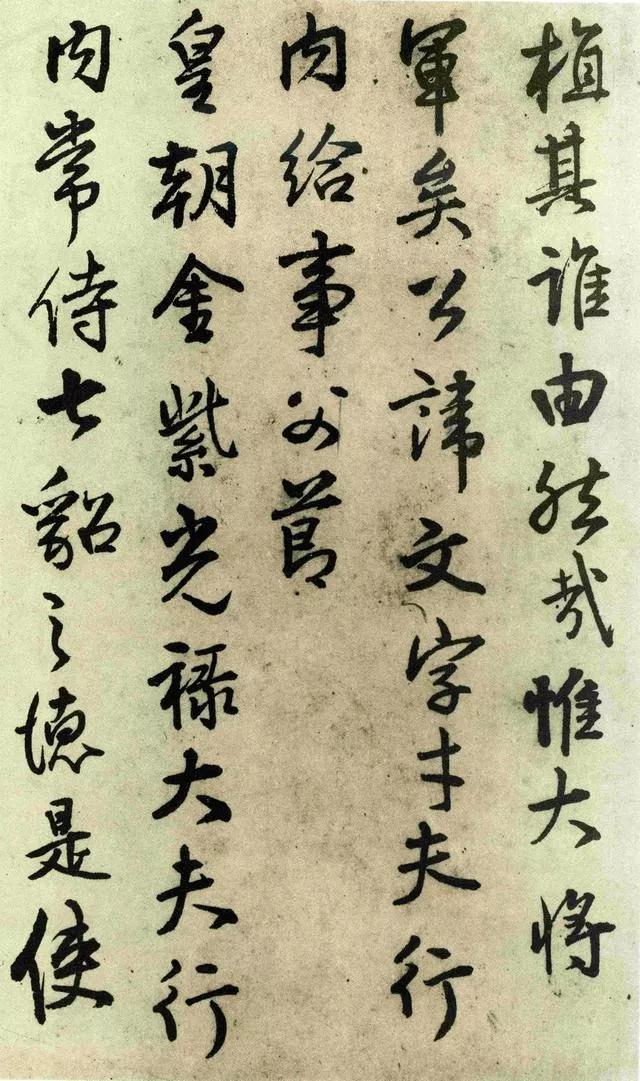 植其誰由然哉惟大將
軍矣公諱文字才夫行
內給事父節
皇朝金紫光祿大夫行
內常侍七貂之德是使